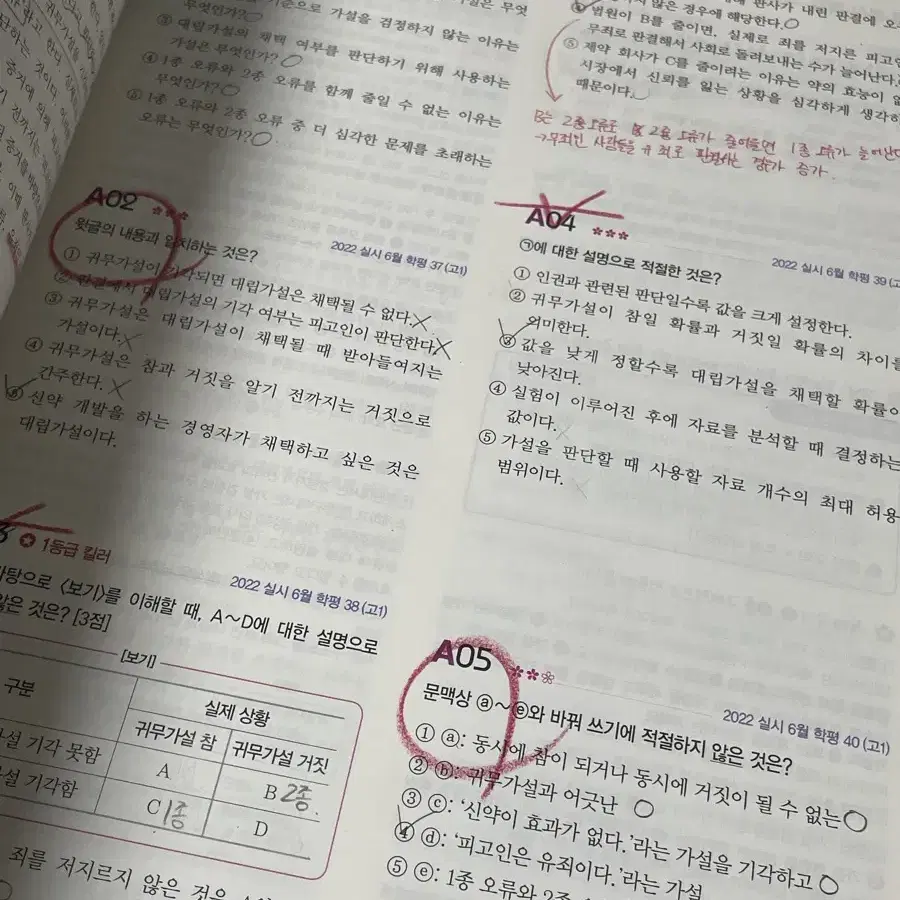 기준으로 가설을 검정하지 않는 이유는
무엇인가?
③ 대립가설의 채택 여부를 판단하기 위해 사용하는
가설은 무엇인가?
④ 1종 오류와 2종 오류를 함께 줄일 수 없는 이유는
무엇인가?
⑤ 1종 오류와 2종 오류 중 더 심각한 문제를 초래하는
오류는 무엇인가?
A02
2022 실시 6월 학평 37(고1)
윗글의 내용과 일치하는 것은?
① 귀무가설이 기각되면 대립가설은 채택될 수 없다.
② 판결에서 대립가설의 기각 여부는 피고인이 판단한다.
③ 귀무가설은 대립가설이 채택될 때 받아들여지는
가설이다.
④ 귀무가설은 참과 거짓을 알기 전까지는 거짓으로
간주한다.
⑤ 신약 개발을 하는 경영자가 채택하고 싶은 것은
대립가설이다.
1등급 킬러
2022 실시 6월 학평 38(고1)
탕으로 〈보기〉를 이해할 때, A～D에 대한 설명으로
않은 것은? [3점]
[보기]
구분
실제 상황
귀무가설 참
귀무가설 거짓
설 기각 못함
A
B 2종
설 기각함
C 1종
D
죄를 저지르지 않은 것은
판사가 내린 판결에
않은 경우에 해당한다.
④ 법원이 B를 줄이면, 실제로 죄를 저지른 피고인
무죄로 판결해서 사회로 돌려보내는 수가 늘어난다.
⑤ 제약 회사가 C를 줄이려는 이유는 약의 효능이 없
시장에서 신뢰를 잃는 상황을 심각하게 생각하
때문이다.
B는 2종오류로 2종 오류가 줄어들면 1종 오류가 늘어난다
→무죄인 사람들을 유죄로 판결하는 경우가 증가.
A04
2022 실시 6월 학평 39(고
㉠에 대한 설명으로 적절한 것은?
① 인권과 관련된 판단일수록 값을 크게 설정한다.
② 귀무가설이 참일 확률과 거짓일 확률의 차이를
의미한다.
③ 값을 낮게 정할수록 대립가설을 채택할 확률이
낮아진다.
④ 실험이 이루어진 후에 자료를 분석할 때 결정하는
값이다.
⑤ 가설을 판단할 때 사용할 자료 개수의 최대 허용
범위이다.
A05
2022 실시 6월 학평 40(고1)
문맥상 ⓐ～ⓔ와 바꿔 쓰기에 적절하지 않은 것은?
① ⓐ: 동시에 참이 되거나 동시에 거짓이 될 수 없는
② ⓑ: 귀무가설과 어긋난
③ ⓒ: ‘신약이 효과가 없다.’라는 가설을 기각하고
④ ⓓ: ‘피고인은 유죄이다.’라는 가설
⑤ ⓔ: 1종 오류와 2종